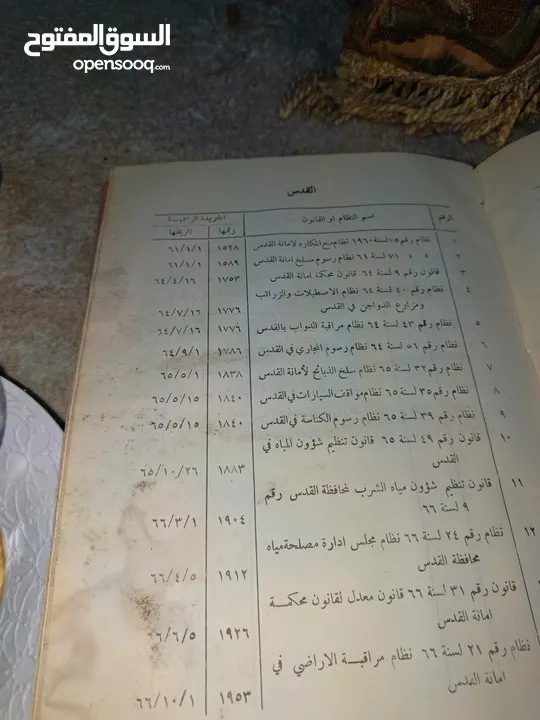 السوق المفتوح
opensooq.com
القدس
الرقم اسم النظام او القانون الجريدة الرسمية
رقمها تاريخها
١ نظام رقم ٧٥ لسنة ١٩٦٠ نظام منع المكاره لامانة القدس ١٥٢٨ ٦١/١/١
٢ » » ٧١ لسنة ٦١ نظام رسوم مسلخ امانة القدس ١٥٨٩ ٦١/١/١
٣ قانون رقم ٩ لسنة ٦٤ قانون محكمة امانة القدس ١٧٥٣ ٦٤/٤/١٦
٤ نظام رقم ٤٠ لسنة ٦٤ نظام الاصطبلات والزرائب
ومزارع الدواجن في القدس ١٧٧٦ ٦٤/٧/١٦
٥ نظام رقم ٤٣ لسنة ٦٤ نظام مراقبة الدواب بالقدس ١٧٧٦ ٦٤/٧/١٦
٦ نظام رقم ٥١ لسنة ٦٤ نظام رسوم المجاري في القدس ١٧٨٦ ٦٤/٩/١
٧ نظام رقم ٣٢ لسنة ٦٥ نظام سلخ الذبائح لأمانة القدس ١٨٣٨ ٦٥/٥/١
٨ نظام رقم ٣٥ لسنة ٦٥ نظام مواقف السيارات في القدس ١٨٤٠ ٦٥/٥/١٥
٩ نظام رقم ٣٩ لسنة ٦٥ نظام رسوم الكناسة في القدس ١٨٤٠ ٦٥/٥/١٥
١٠ قانون رقم ٤٩ لسنة ٦٥ قانون تنظيم شؤون المياه في
القدس ١٨٨٣ ٦٥/١٠/٢٦
١١ قانون تنظيم شؤون مياه الشرب لمحافظة القدس رقم
٩ لسنة ٦٦ ١٩٠٤ ٦٦/٣/١
١٢ نظام رقم ٢٤ لسنة ٦٦ نظام مجلس ادارة مصلحة مياه
محافظة القدس ١٩١٢ ٦٦/٤/٥
قانون رقم ٣١ لسنة ٦٦ قانون معدل لقانون محكمة
امانة القدس ١٩٢٦ ٦٦/٦/٥
نظام رقم ٢١ لسنة ٦٦ نظام مراقبة الاراضي في
امانة القدس ١٩٥٣ ٦٦/١٠/١